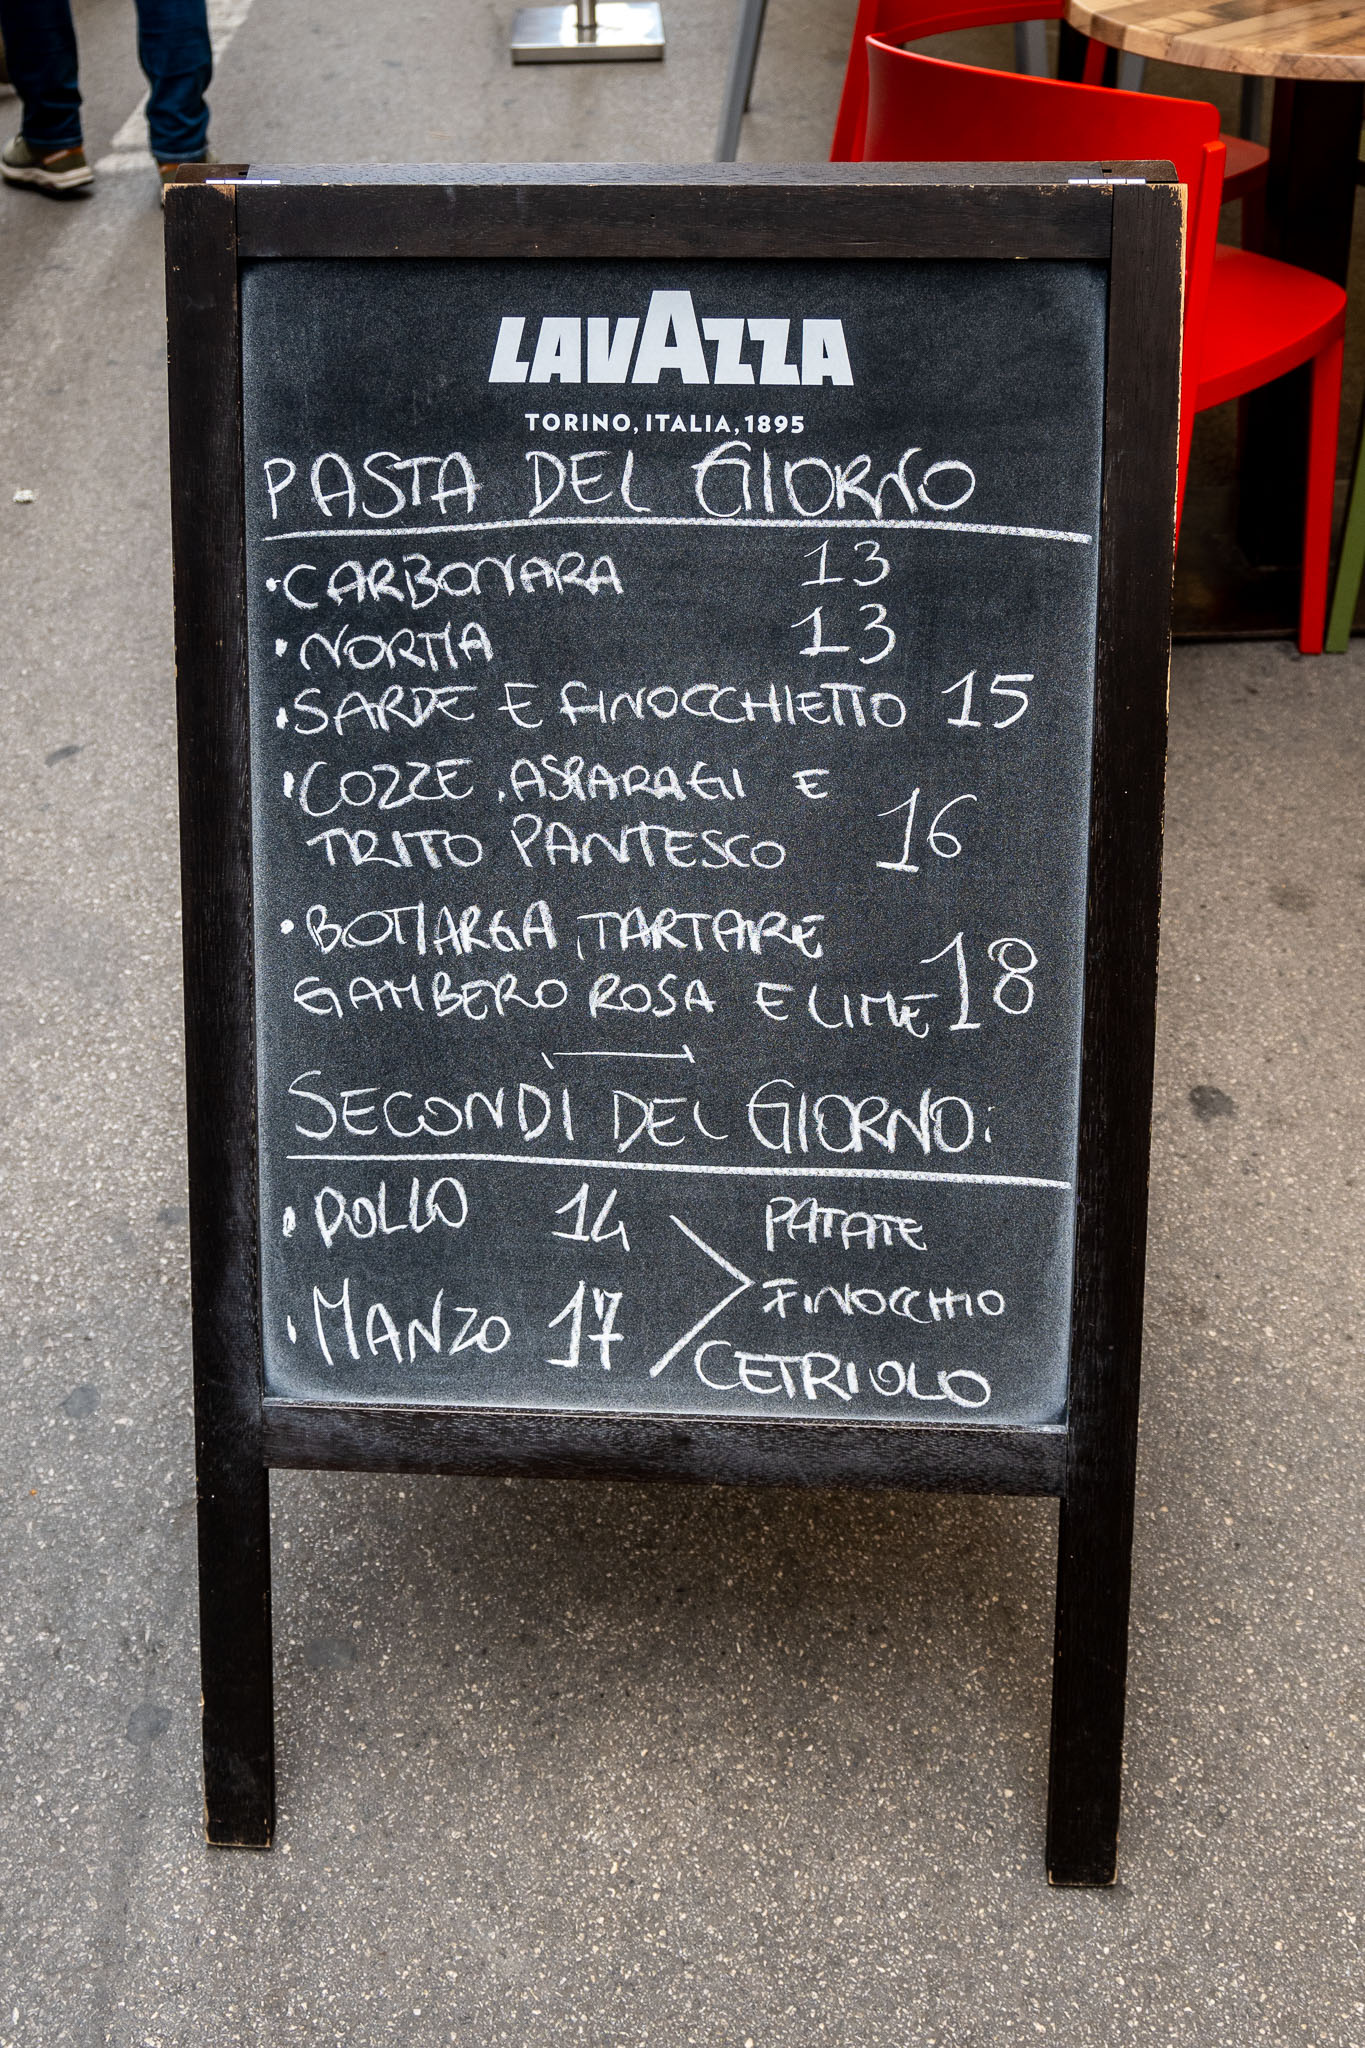 LAVAZZA
TORINO, ITALIA, 1895
PASTA DEL GIORNO
• CARBONARA 13
• NORMA 13
• SARDE E FINOCCHIETTO 15
• COZZE, ASPARAGI E
TRITO PANTESCO 16
• BOTTARGA, TARTARE
GAMBERO ROSA E LIME 18
SECONDÌ DEL GIORNO:
• POLLO 14
• MANZO 17
PATATE
FINOCCHIO
CETRIOLO